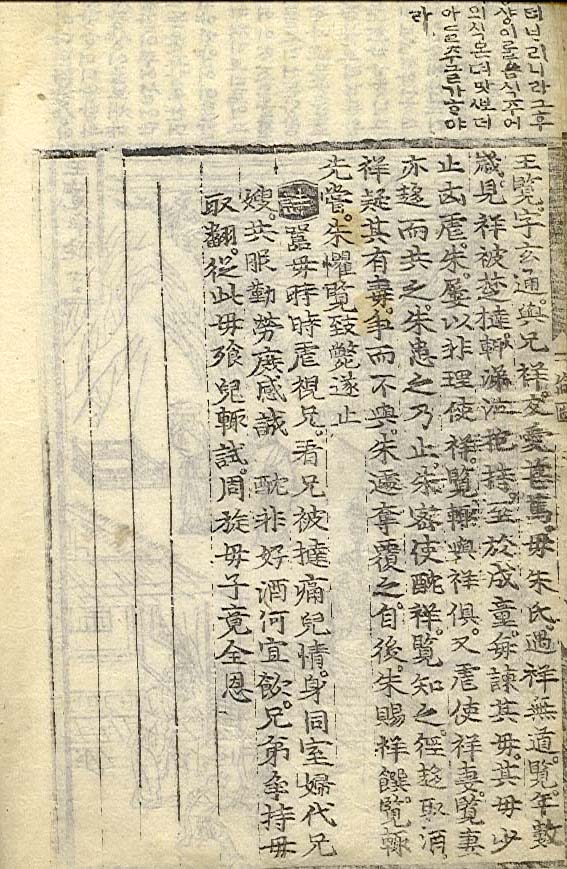 리니라그후
음식주어
王覽字玄通。與兄祥友愛甚篤。母朱氏。遇祥無道。覽。年數
歲。見祥被楚撻。輒涕泣抱持。至於成童。每諫其母。其母少
止凶虐。朱。屢以非理使祥。覽輒與祥俱。又虐使祥妻。覽妻
亦趍而共之。朱患之。乃止。朱。密使酖祥。覽知之。徑趍取酒。
祥疑其有毒。爭而不與。朱遽奪覆之。自後。朱賜祥饌。覽輒
先嘗。朱懼覽致斃。遂止
詩 嚚母時時虐視兄。看兄被撻痛兒情。身同室婦代兄
嫂。共服勤勞庶感誠 酖非好酒何宜飮。兄弟爭持母
取翻。從此母飱兒輒試。周旋母子竟全恩